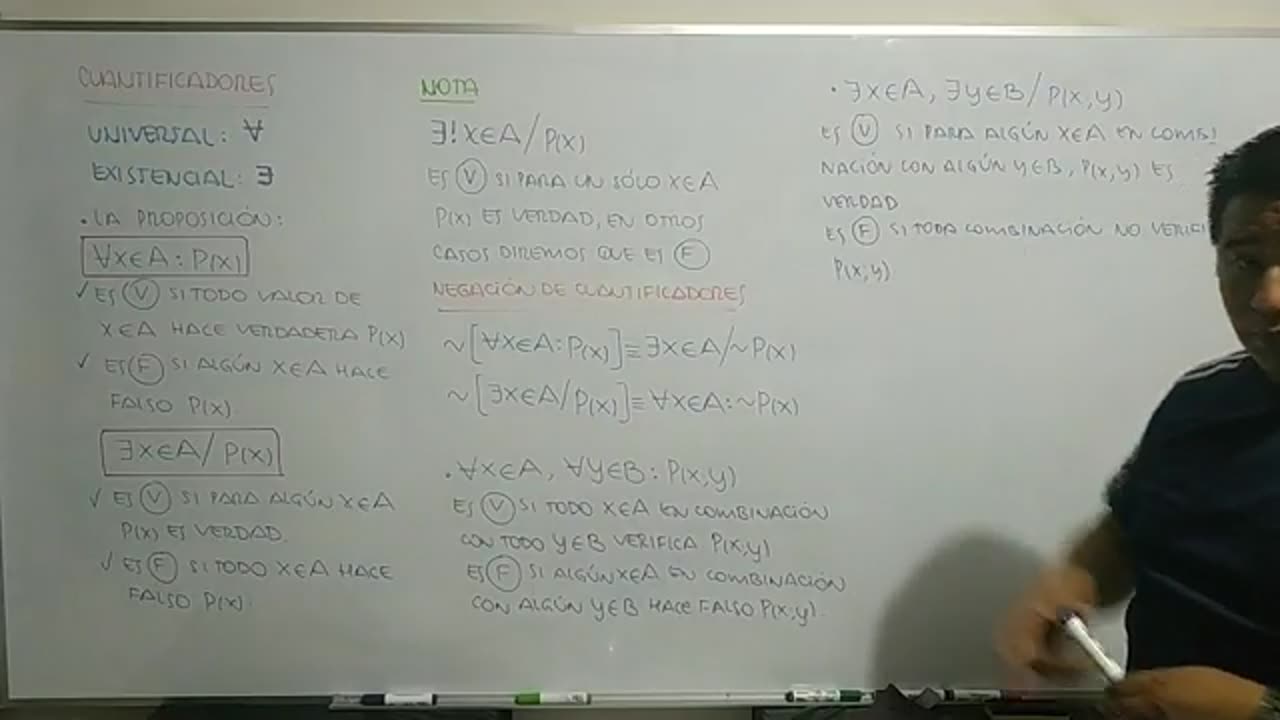 CUANTIFICADORES
UNIVERSAL: ∀
EXISTENCIAL: ∃
• LA PROPOSICIÓN:
∀x∈A : P(x)
✓ ES Ⓥ SI TODO VALOR DE
x∈A HACE VERDADERA P(x)
✓ ES Ⓕ SI ALGÚN x∈A HACE
FALSO P(x).
∃x∈A / P(x)
✓ ES Ⓥ SI PARA ALGÚN x∈A
P(x) ES VERDAD.
✓ ES Ⓕ SI TODO x∈A HACE
FALSO P(x).
NOTA
∃! x∈A / P(x)
ES Ⓥ SI PARA UN SÓLO x∈A
P(x) ES VERDAD, EN OTROS
CASOS DIREMOS QUE ES Ⓕ
NEGACIÓN DE CUANTIFICADORES
~[∀x∈A : P(x)] ≡ ∃x∈A / ~P(x)
~[∃x∈A / P(x)] ≡ ∀x∈A : ~P(x)
• ∀x∈A, ∀y∈B : P(x,y)
ES Ⓥ SI TODO x∈A EN COMBINACIÓN
CON TODO y∈B VERIFICA P(x,y)
ES Ⓕ SI ALGÚN x∈A EN COMBINACIÓN
CON ALGÚN y∈B HACE FALSO P(x,y).
• ∃x∈A, ∃y∈B / P(x,y)
ES Ⓥ SI PARA ALGÚN x∈A EN COMBI
NACIÓN CON ALGÚN y∈B, P(x,y) ES
VERDAD
ES Ⓕ SI TODA COMBINACIÓN NO VERIFI
P(x,y)